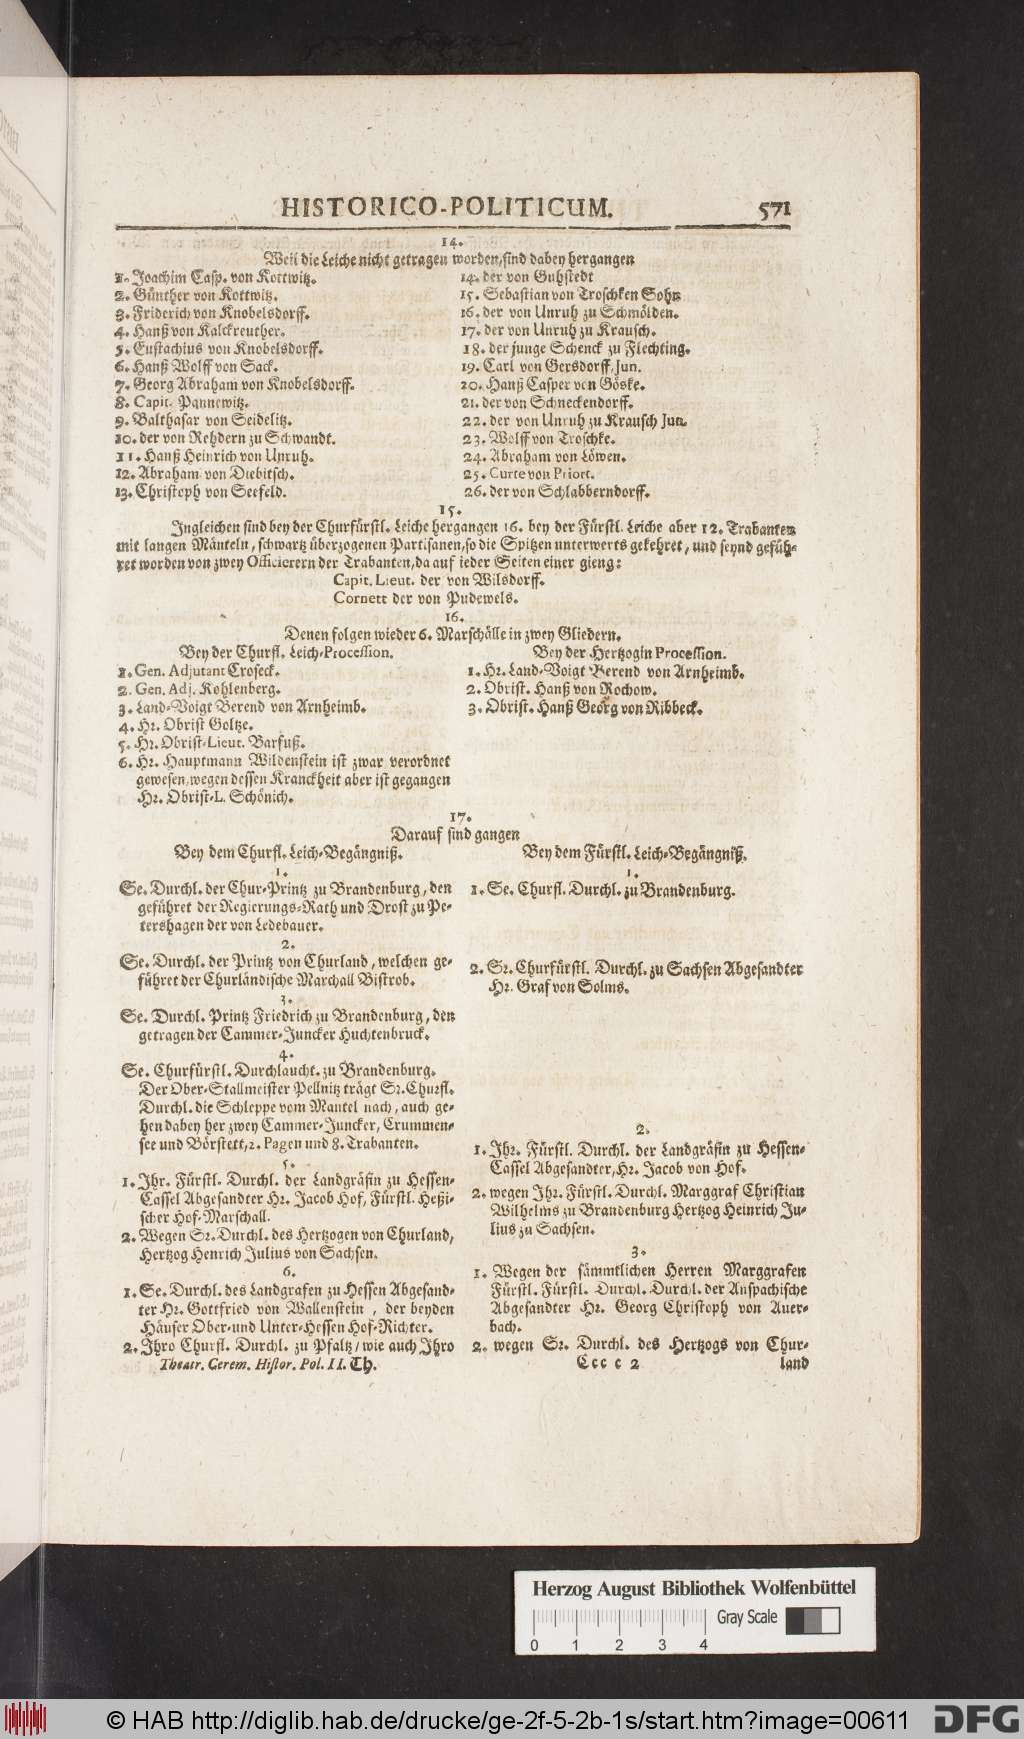 HISTORICO-POLITICUM. 571
14.
Weil die Leiche nicht getragen worden, sind dabey hergangen
1. Joachim Casp. von Kottwitz.
2. Günther von Kottwitz.
3. Friderich von Knobelsdorff.
4. Hanß von Kalckreuther.
5. Eustachius von Knobelsdorff.
6. Hanß Wolff von Sack.
7. Georg Abraham von Knobelsdorff.
8. Capit. Pannewitz.
9. Balthasar von Seidelitz.
10. der von Rehdern zu Schwandt.
11. Hanß Heinrich von Unruh.
12. Abraham von Diebitsch.
13. Christoph von Seefeld.
14. der von Guhstedt
15. Sebastian von Troschken Sohn
16. der von Unruh zu Schmölden.
17. der von Unruh zu Krausch.
18. der junge Schenck zu Flechting.
19. Carl von Gersdorff, Jun.
20. Hanß Casper von Göske.
21. der von Schneckendorff.
22. der von Unruh zu Krausch Jun.
23. Wolff von Troschke.
24. Abraham von Löwen.
25. Curte von Priort.
26. der von Schlabberndorff.
15.
Ingleichen sind bey der Churfürstl. Leiche hergangen 16. bey der Fürstl. Leiche aber 12. Trabanten
mit langen Mänteln, schwartz überzogenen Partisanen, so die Spitzen unterwerts gekehret, und seynd gefüh-
ret worden von zwey Officierern der Trabanten, da auf jeder Seiten einer gieng:
Capit. Lieut. der von Wilsdorff.
Cornett der von Pudewels.
16.
Denen folgen wieder 6. Marschälle in zwey Gliedern.
Bey der Churfl. Leich-Procession.
1. Gen. Adjutant Croseck.
2. Gen. Adj. Kohlenberg.
3. Land-Voigt Berend von Arnheimb.
4. Hr. Obrist Goltze.
5. Hr. Obrist-Lieut. Barfuß.
6. Hr. Hauptmann Wildenstein ist zwar verordnet
gewesen, wegen dessen Kranckheit aber ist gegangen
Hr. Obrist-L. Schönich.
Bey der Hertzogin Procession.
1. Hr. Land-Voigt Berend von Arnheimb.
2. Obrist. Hanß von Rochow.
3. Obrist. Hanß Georg von Ribbeck.
17.
Darauf sind gangen
Bey dem Churfl. Leich-Begängniß.
1.
Se. Durchl. der Chur-Printz zu Brandenburg, den
geführet der Regierungs-Rath und Drost zu Pe-
tershagen der von Ledebauer.
2.
Se. Durchl. der Printz von Churland, welchen ge-
führet der Churländische Marchall Bistrob.
3.
Se. Durchl. Printz Friedrich zu Brandenburg, den
getragen der Cammer-Juncker Huchtenbruck.
4.
Se. Churfürstl. Durchlaucht. zu Brandenburg.
Der Ober-Stallmeister Pellnitz trägt Sr. Churfl.
Durchl. die Schleppe vom Mantel nach, auch ge-
hen dabey her zwey Cammer-Juncker, Crummen-
see und Börstett, 2. Pagen und 8. Trabanten.
5.
1. Ihr. Fürstl. Durchl. der Landgräfin zu Hessen-
Cassel Abgesandter Hr. Jacob Hof, Fürstl. Heßi-
scher Hof-Marschall.
2. Wegen Sr. Durchl. des Hertzogen von Churland,
Hertzog Henrich Julius von Sachsen.
6.
1. Se. Durchl. des Landgrafen zu Hessen Abgesand-
ter Hr. Gottfried von Wallenstein, der beyden
Häuser Ober-und Unter-Hessen Hof-Richter.
2. Ihro Churfl. Durchl. zu Pfaltz / wie auch Ihro
Theatr. Cerem. Histor. Pol. II. Th.
Bey dem Fürstl. Leich-Begängniß.
1.
1. Se. Churfl. Durchl. zu Brandenburg.
2. Sr. Churfürstl. Durchl. zu Sachsen Abgesandter
Hr. Graf von Solms.
2.
1. Ihr. Fürstl. Durchl. der Landgräfin zu Hessen-
Cassel Abgesandter, Hr. Jacob von Hof.
2. wegen Ihr. Fürstl. Durchl. Marggraf Christian
Wilhelms zu Brandenburg Hertzog Heinrich Ju-
lius zu Sachsen.
3.
1. Wegen der sämmtlichen Herren Marggrafen
Fürstl. Fürstl. Durchl. Durchl. der Anspachische
Abgesandter Hr. Georg Christoph von Auer-
bach.
2. wegen Sr. Durchl. des Hertzogs von Chur-
Cccc c 2 land
Herzog August Bibliothek Wolfenbüttel
Gray Scale
0 1 2 3 4
© HAB http://diglib.hab.de/drucke/ge-2f-5-2b-1s/start.htm?image=00611
DFG